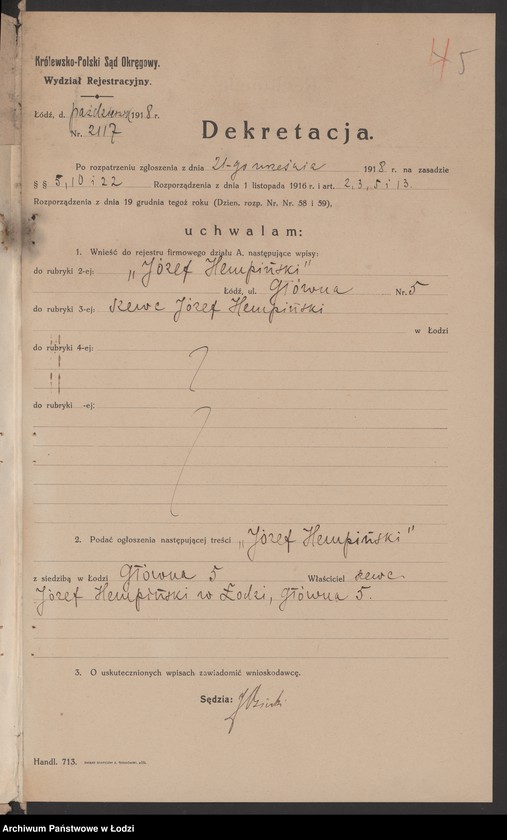 45
Królewsko-Polski Sąd Okręgowy.
Wydział Rejestracyjny.
Łódź, d. październ. 1918 r.
Nr. 2117
Dekretacja.
Po rozpatrzeniu zgłoszenia z dnia 21-go września 1918 r. na zasadzie
§ § 5, 10 i 22 Rozporządzenia z dnia 1 listopada 1916 r. i art. 2, 3, 5 i 13
Rozporządzenia z dnia 19 grudnia tegoż roku (Dzien. rozp. Nr. Nr. 58 i 59),
uchwalam:
1. Wnieść do rejestru firmowego działu A. następujące wpisy:
do rubryki 2-ej: „Józef Hempiński"
Łódź, ul. Główna Nr. 5
do rubryki 3-ej: szewc Józef Hempiński
w Łodzi
do rubryki 4-ej:
do rubryki -ej:
2. Podać ogłoszenia następującej treści „Józef Hempiński"
z siedzibą w Łodzi Główna 5 Właściciel szewc
Józef Hempiński w Łodzi, Główna 5.
3. O uskutecznionych wpisach zawiadomić wnioskodawcę.
Sędzia:
Handl. 713.
Archiwum Państwowe w Łodzi